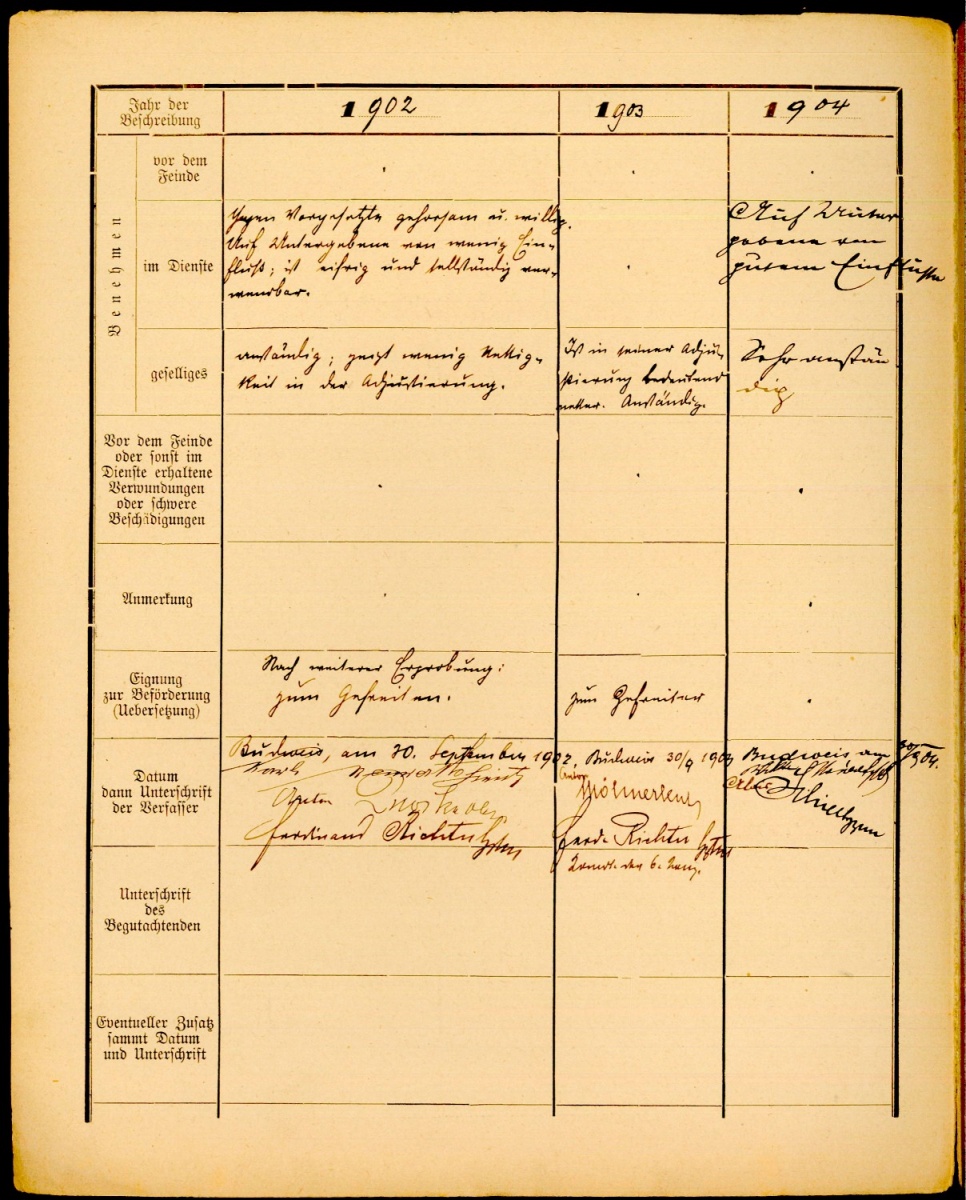 Jahr der
Beschreibung
1902
1903
1904
Benehmen
vor dem
Feinde
im Dienste
Gegen Vorgesetzte gehorsam u. willig.
Auf Untergebene von wenig Ein-
fluß; ist eifrig und selbständig ver-
wendbar.
Auf Unter
gebene von
gutem Einflusse
geselliges
anständig; zeigt wenig Nettig-
keit in der Adjustierung.
Ist in seiner Adju-
stierung bedeutend
netter. Anständig.
Sehr anstän
dig
Vor dem Feinde
oder sonst im
Dienste erhaltene
Verwundungen
oder schwere
Beschädigungen
Anmerkung
Eignung
zur Beförderung
(Uebersetzung)
Nach weiterer Erprobung:
zum Gefreiten.
zum Gefreiter
Datum
dann Unterschrift
der Verfasser
Budweis, am 30. September 1902.
Karl
Ferdinand Richter Hptm
Budweis 30/9 1903
Ferd. Richter Hptm
Komdt. der 6. Komp.
Budweis am
30/9 04.
Unterschrift
des
Begutachtenden
Eventueller Zusatz
sammt Datum
und Unterschrift